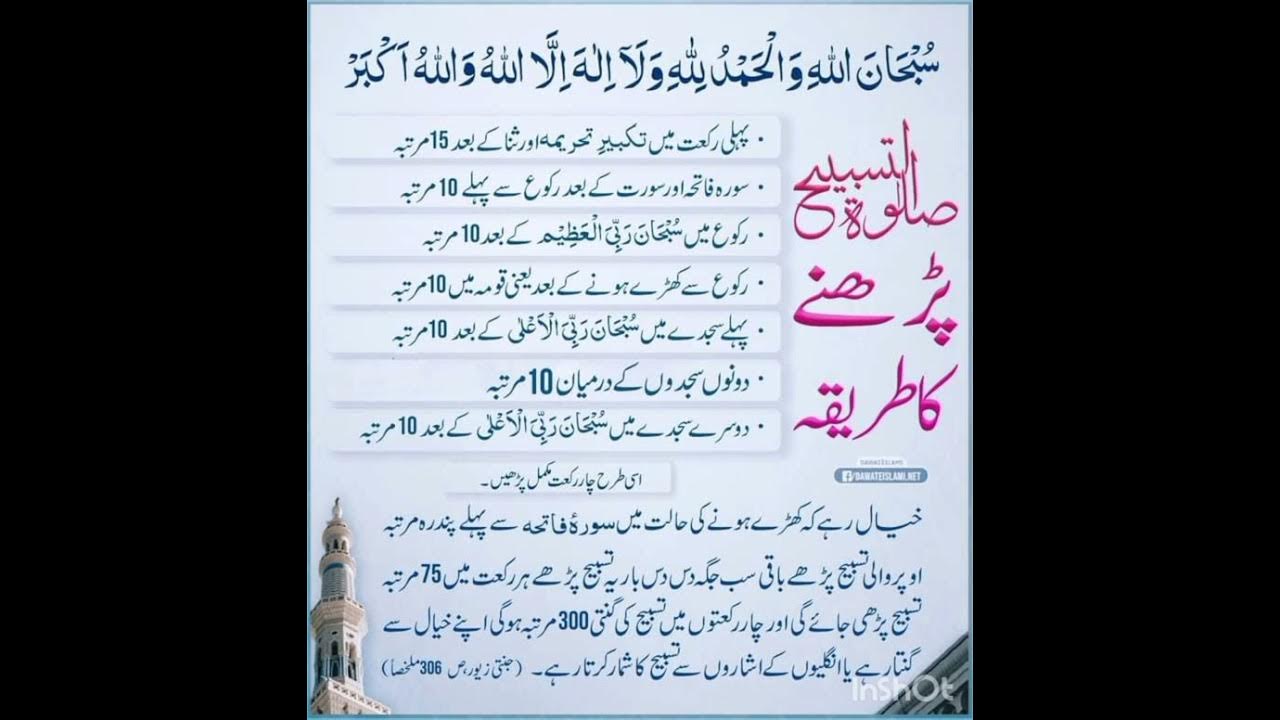 سُبْحَانَ اللهِ وَالْحَمْدُ لِلّٰهِ وَلَآ اِلٰهَ اِلَّا اللهُ وَاللهُ اَكْبَرْ
صلوٰۃ التسبیح
پڑھنے
کا طریقہ
• پہلی رکعت میں تکبیرِ تحریمہ اور ثنا کے بعد 15 مرتبہ
• سورہ فاتحہ اور سورت کے بعد رکوع سے پہلے 10 مرتبہ
• رکوع میں سُبْحَانَ رَبِّیَ الْعَظِیْم کے بعد 10 مرتبہ
• رکوع سے کھڑے ہونے کے بعد یعنی قومہ میں 10 مرتبہ
• پہلے سجدے میں سُبْحَانَ رَبِّیَ الْاَعْلٰی کے بعد 10 مرتبہ
• دونوں سجدوں کے درمیان 10 مرتبہ
• دوسرے سجدے میں سُبْحَانَ رَبِّیَ الْاَعْلٰی کے بعد 10 مرتبہ
DAWATEISLAMI
f/DAWATEISLAMI.NET
اسی طرح چار رکعت مکمل پڑھیں۔
خیال رہے کہ کھڑے ہونے کی حالت میں سورۂ فاتحہ سے پہلے پندرہ مرتبہ
اوپر والی تسبیح پڑھے باقی سب جگہ دس دس بار یہ تسبیح پڑھے ہر رکعت میں 75 مرتبہ
تسبیح پڑھی جائے گی اور چار رکعتوں میں تسبیح کی گنتی 300 مرتبہ ہوگی اپنے خیال سے
گنتا رہے یا انگلیوں کے اشاروں سے تسبیح کا شمار کرتا رہے۔ (جنتی زیور، ص 306 ملخصاً)
InShOt